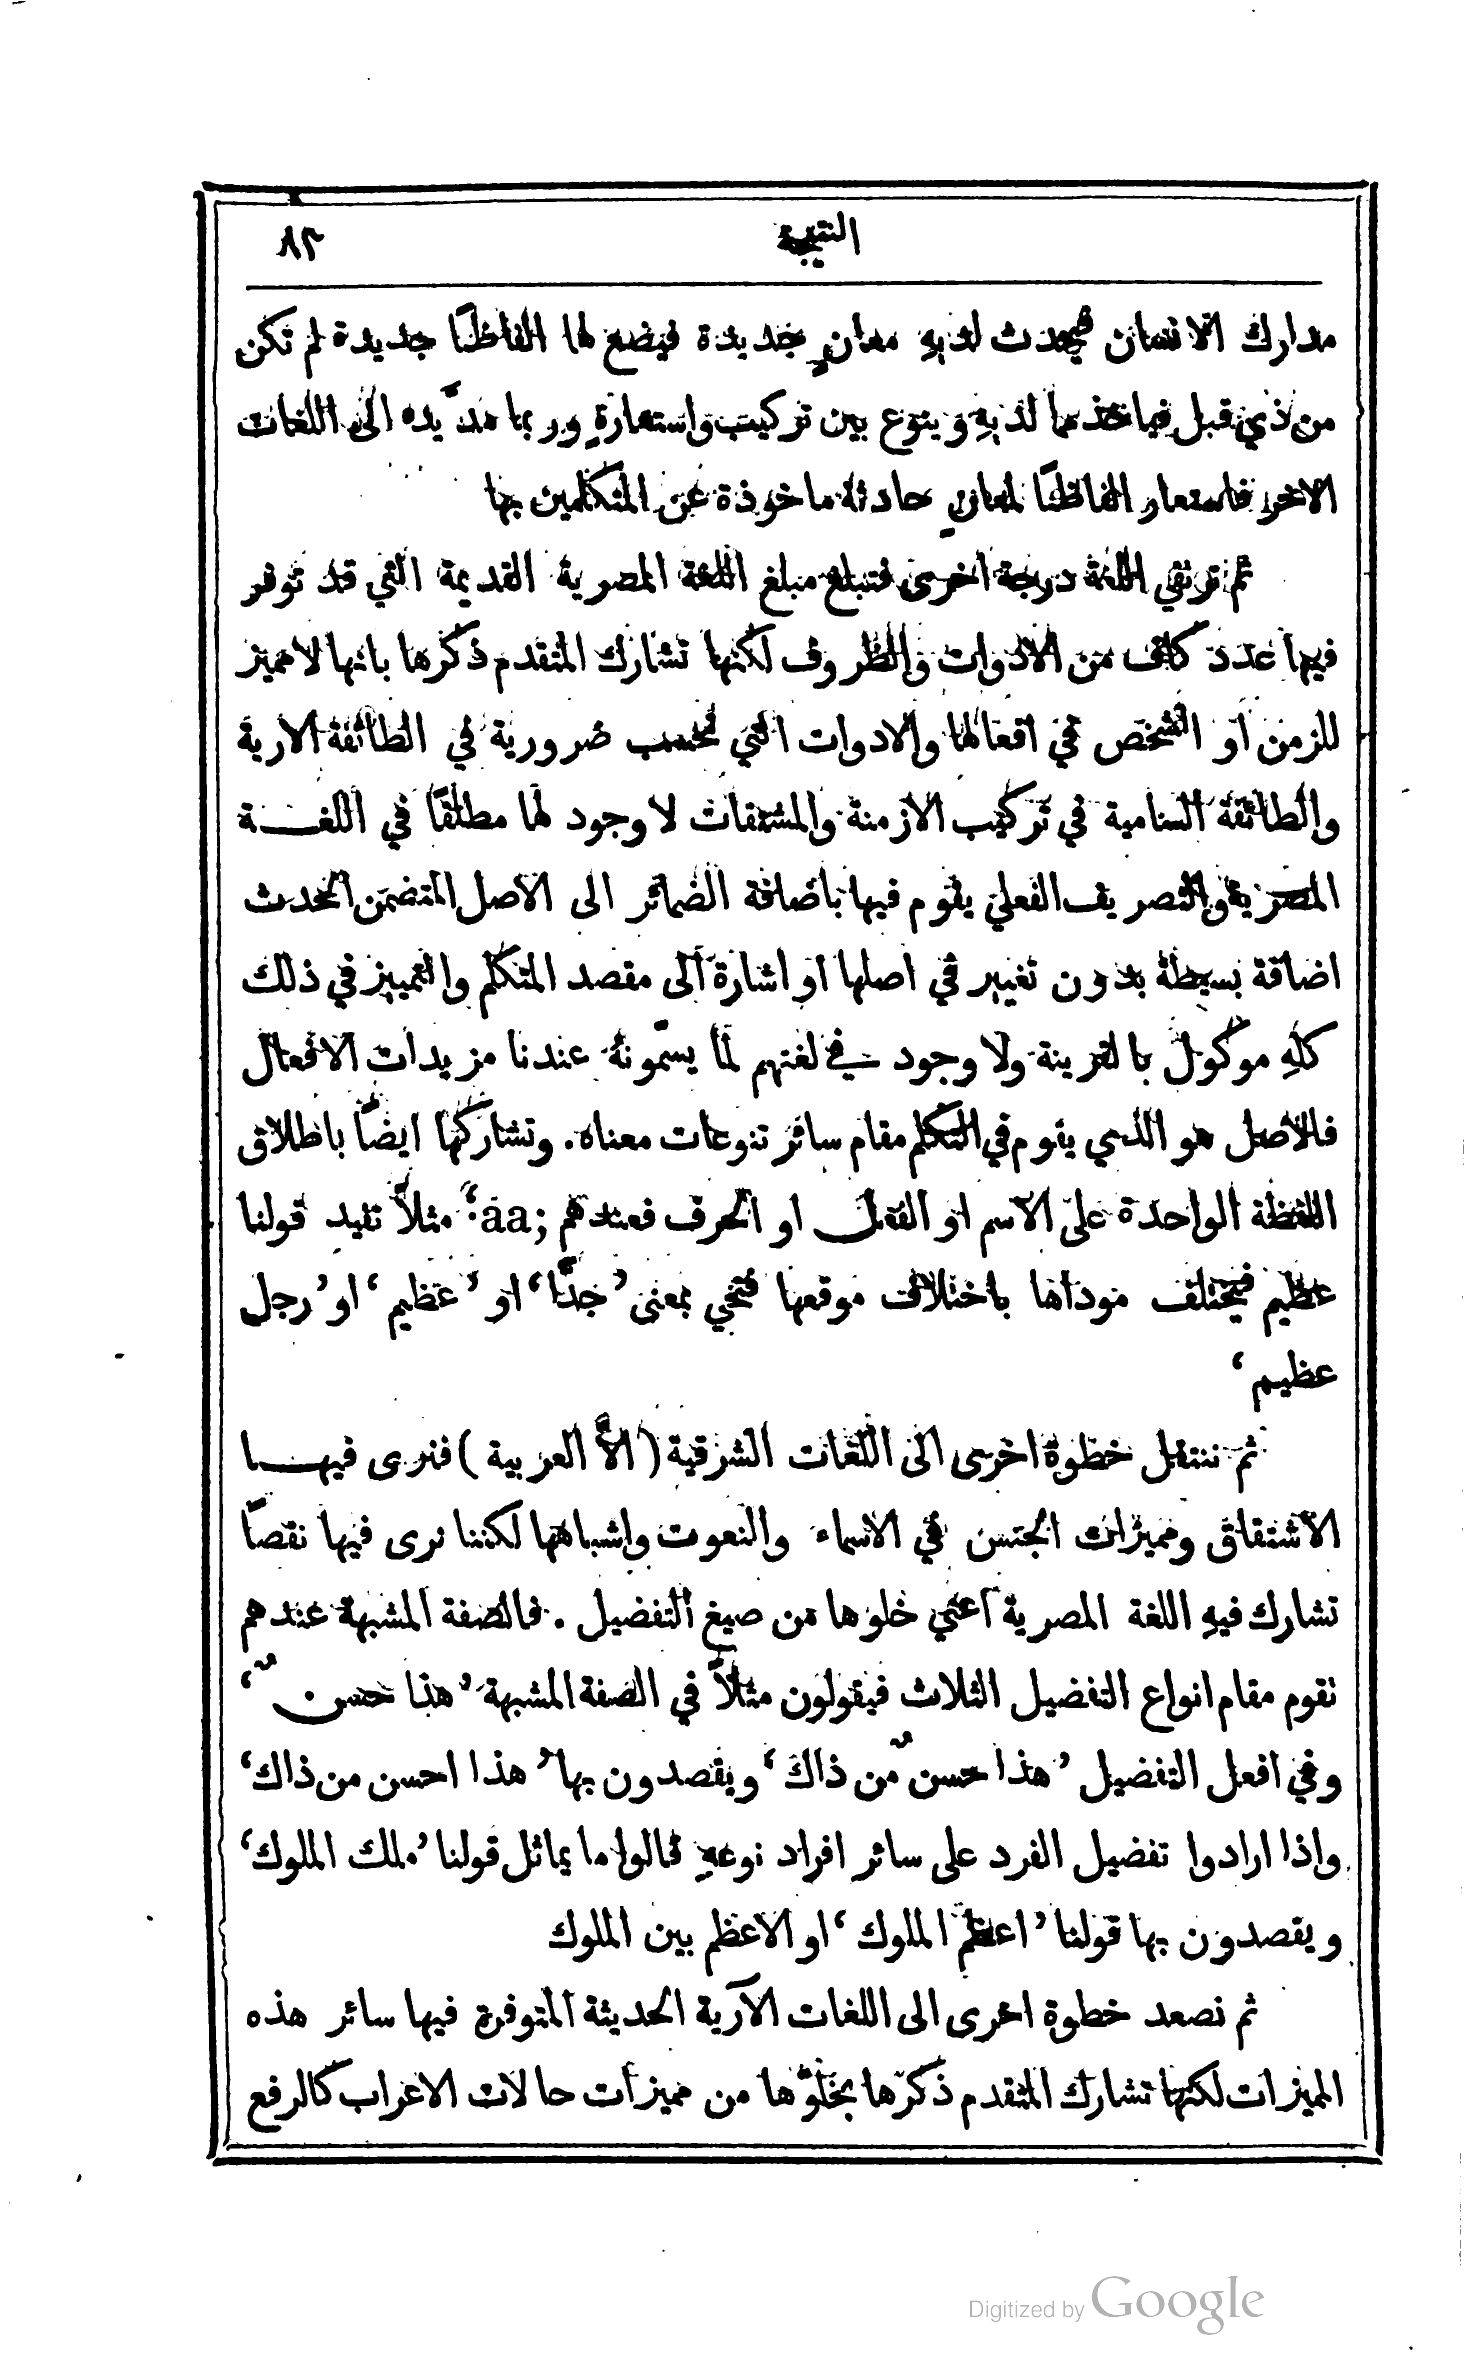 النتيجة ٨٣
مدارك الانسان فيحدث لديهِ معانٍ جديدة فيضع لها الفاظًا جديدة لم تكن
من ذي قبل فياخذ مما لديهِ وينوع بين تركيب واستعارةٍ وربما مدَّ يده الى اللغات
الاخر فاستعار الفاظًا لمعانٍ حادثة ماخوذة عن المتكلمين بها
ثم ترتقي اللغة درجة اخرى فتبلغ مبلغ اللغة المصرية القديمة التي قد توفر
فيها عدد كاف من الادوات والظروف لكنها تشارك المتقدم ذكرها بانها لا مميز
للزمن او الشخص في افعالها والادوات التي تحسب ضرورية في الطائفة الارية
والطائفة السامية في تركيب الازمنة والمشتقات لا وجود لها مطلقًا في اللغة
المصرية والتصريف الفعلي يقوم فيها باضافة الضمائر الى الاصل المتضمن الحدث
اضافة بسيطة بدون تغيير في اصلها او اشارة الى مقصد المتكلم والتمييز في ذلك
كلهِ موكول بالقرينة ولا وجود في لغتهم لما يسمّونهُ عندنا مزيدات الافعال
فالاصل هو الذي يقوم في التكلم مقام سائر تنوعات معناه. وتشاركها ايضًا باطلاق
اللفظة الواحدة على الاسم او الفعل او الحرف فعندهم ;aa‘ مثلاً تفيد قولنا
عظيم فيختلف موداها باختلاف موقعها فتجي بمعنى ’جدًّا‘ او ’عظيم‘ او ’رجل
عظيم‘
ثم ننتقل خطوة اخرى الى اللغات الشرقية (الاَّ العربية) فنرى فيها
الاشتقاق ومميزات الجنس في الاسماء والنعوت واشباهها لكننا نرى فيها نقصًا
تشارك فيهِ اللغة المصرية اعني خلوها من صيغ التفضيل. فالصفة المشبهة عندهم
تقوم مقام انواع التفضيل الثلاث فيقولون مثلاً في الصفة المشبهة ’هذا حسنٌ‘
وفي افعل التفضيل ’هذا حسنٌ من ذاك‘ ويقصدون بها ’هذا احسن من ذاك‘
واذا ارادوا تفضيل الفرد على سائر افراد نوعهِ قالوا ما يماثل قولنا ’ملك الملوك‘
ويقصدون بها قولنا ’اعظم الملوك‘ او الاعظم بين الملوك
ثم نصعد خطوة اخرى الى اللغات الآرية الحديثة المتوفرة فيها سائر هذه
المميزات لكنها تشارك المتقدم ذكرها بخلوّها من مميزات حالات الاعراب كالرفع
Digitized by Google